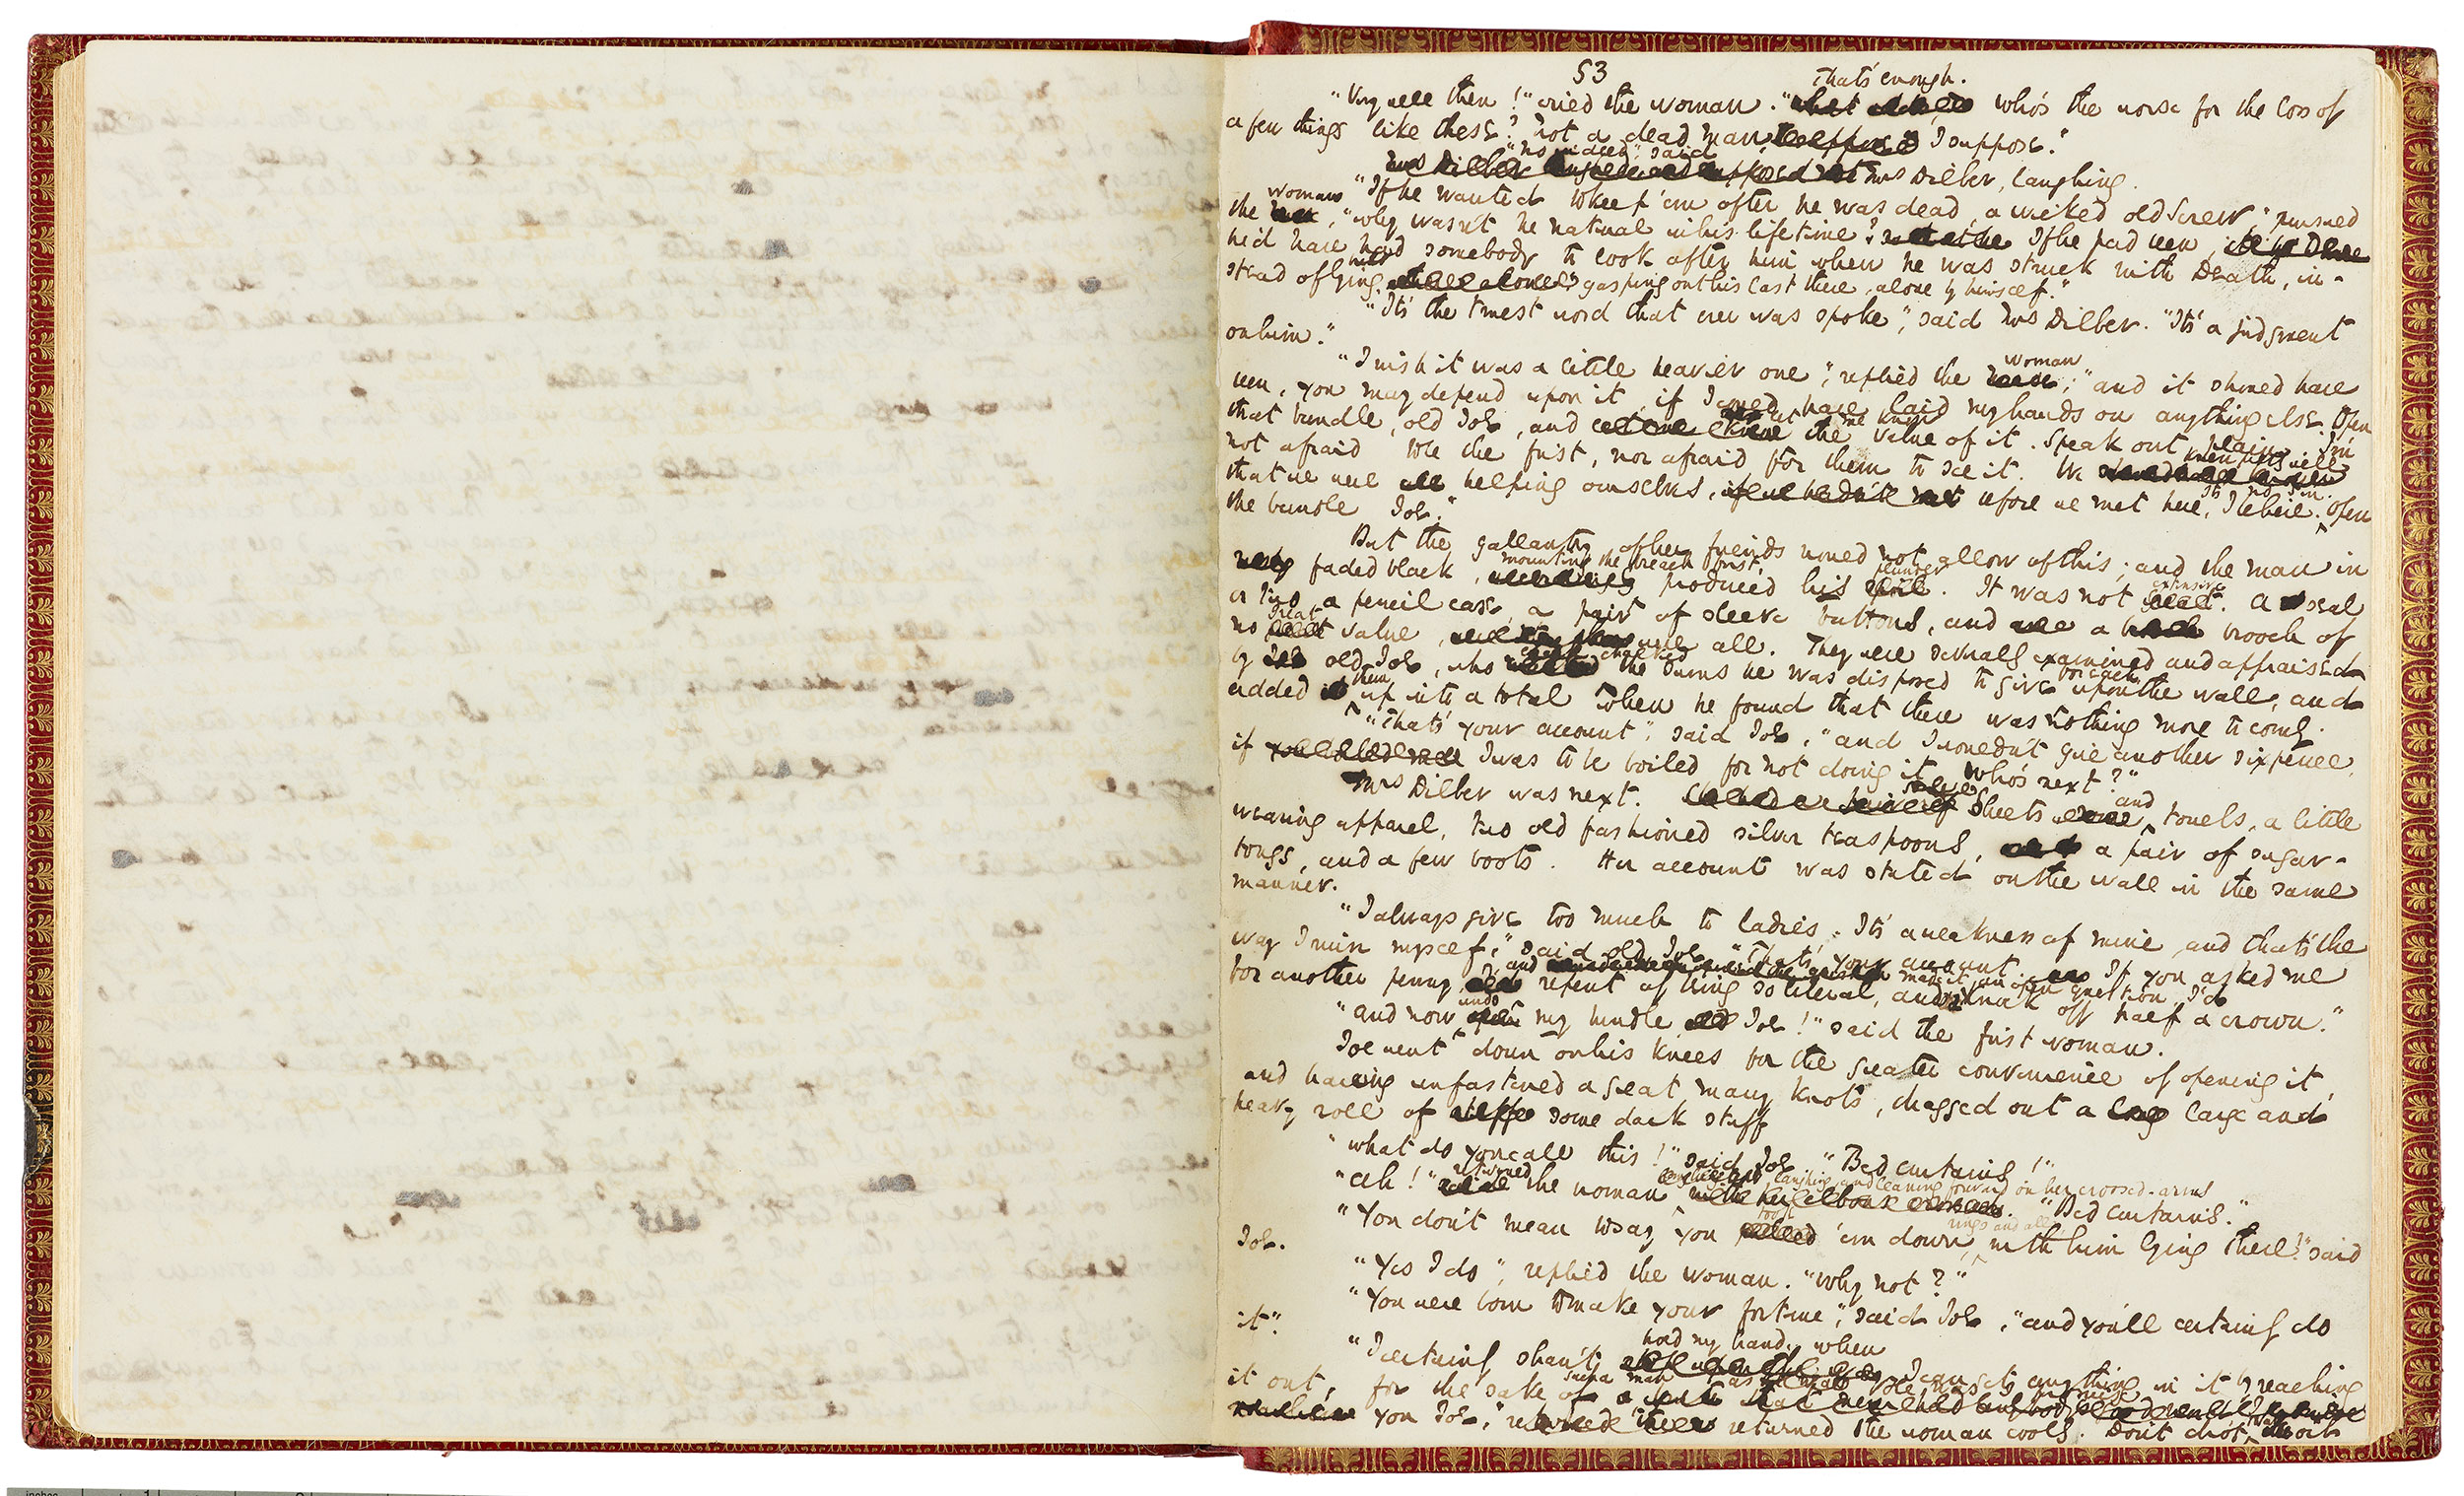 53
That's enough.
"Very well then!" cried the woman. " who's the worse for the loss of
a few things like these? Not a dead man I suppose."
"No indeed," said
Mrs Dilber, laughing.
"If he wanted to keep 'em after he was dead, a wicked old Screw," pursued
woman
the , "why wasn't he natural in his lifetime? If he had been,
he'd have had somebody to look after him when he was struck with Death, in-
stead of lying gasping out his last there, alone by himself."
"It's the truest word that ever was spoke", said Mrs Dilber. "It's a judgment
on him."
woman
"I wish it was a little heavier one", replied the ; "and it should have
been, you may depend upon it, if I could have laid my hands on anything else. Open
that bundle, old Joe, and let me know the value of it. Speak out plain. I'm
not afraid to be the first, nor afraid for them to see it. We knew pretty well
that we were helping ourselves, before we met here, I believe. It's no sin. Open
the bundle Joe."
But the gallantry of her friends would not allow of this; and the man in
mounting the breach first,
faded black, produced his plunder. It was not extensive. A seal
or two, a pencil case, a pair of sleeve buttons, and a brooch of
no great value, were all. They were severally examined and appraised
by old Joe, who chalked the sums he was disposed to give for each, upon the wall, and
added them up into a total when he found that there was nothing more to come.
"That's your account", said Joe, "and I wouldn't give another sixpence,
if I was to be boiled for not doing it. Who's next?"
Mrs Dilber was next. Sheets and towels, a little
wearing apparel, two old fashioned silver teaspoons, a pair of sugar-
tongs, and a few boots. Her account was stated on the wall in the same
manner.
"I always give too much to ladies. It's a weakness of mine, and that's the
way I ruin myself," said old Joe. "That's your account. If you asked me
for another penny, and made it an open question, I'd
repent of being so liberal, and knock off half a crown."
"and now undo my bundle Joe!" said the first woman.
Joe went down on his knees for the greater convenience of opening it,
and having unfastened a great many knots, dragged out a large and
heavy roll of some dark stuff
"what do you call this!" said Joe. "Bed curtains!"
"Ah!" returned the woman, laughing and leaning forward on her crossed-arms
"Bed curtains."
"You don't mean to say you took 'em down, rings and all, with him lying there!" said
Joe.
"Yes I do", replied the woman. "Why not?"
"You were born to make your fortune", said Joe, "and you'll certainly do
it".
hold my hand, when
"I certainly shan't I can get anything in it by reaching
it out, for the sake of such a man as he was, I promise
you Joe," returned the woman coolly. Don't drop that oil